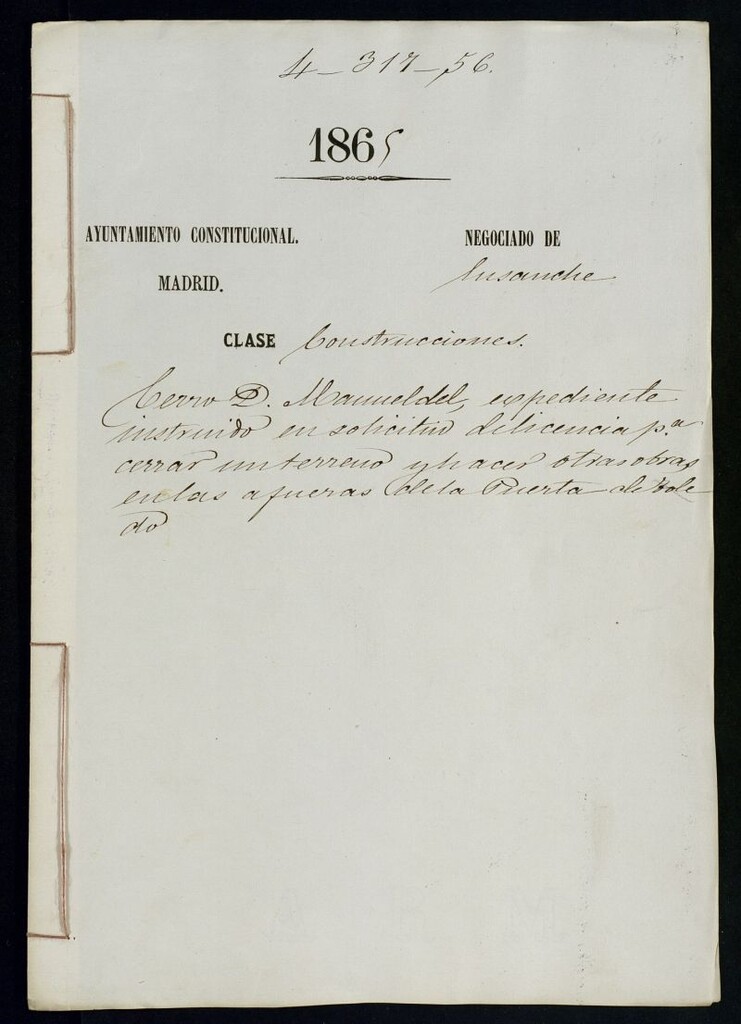 4-317-56.
1865
AYUNTAMIENTO CONSTITUCIONAL.
MADRID.
NEGOCIADO DE
Ensanche
CLASE Construcciones.
Cerro D. Manuel del, expediente
instruido en solicitud de licencia p.ª
cerrar un terreno y hacer otras obras
en las afueras de la Puerta de Tole
do